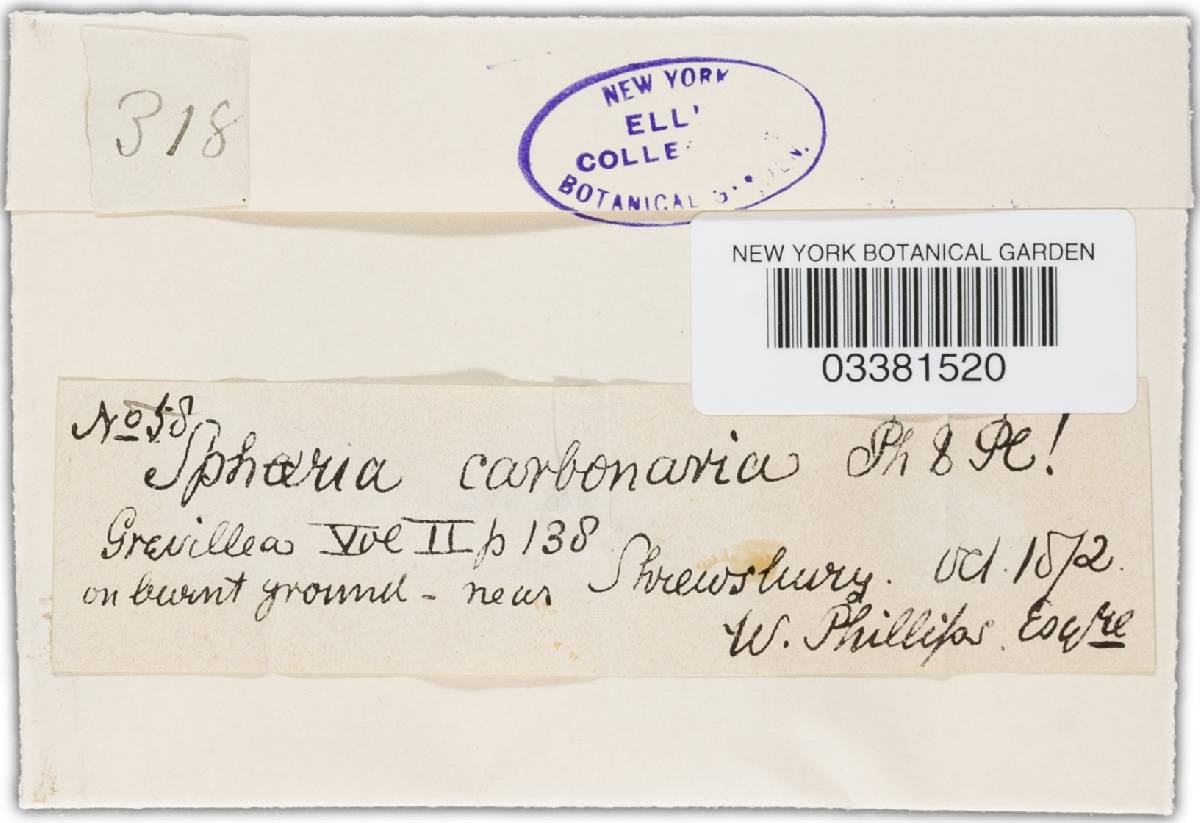 318
NEW YORK
ELL'
COLLE
BOTANICAL G
NEW YORK BOTANICAL GARDEN
03381520
No 58
Sphæria carbonaria Ph & Pl!
Grevillea Vol II p 138
on burnt ground - near Shrewsbury. Oct. 1872.
W. Phillips. Esqre